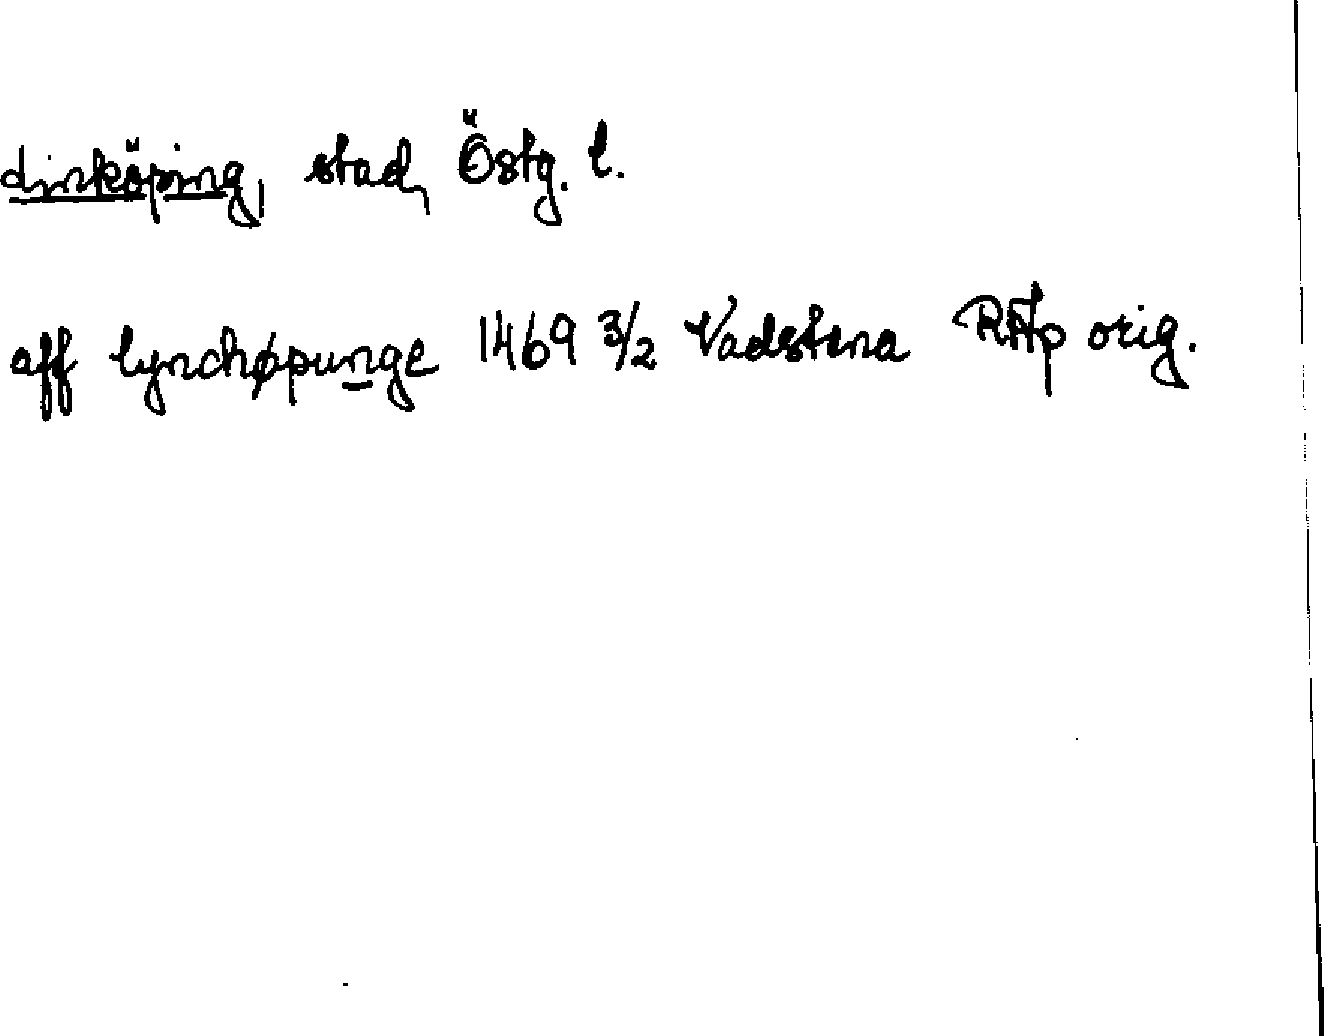 Linköping, stad, Östg. l.
aff lynchøpunge 1469 3/2 Vadstena RAp orig.